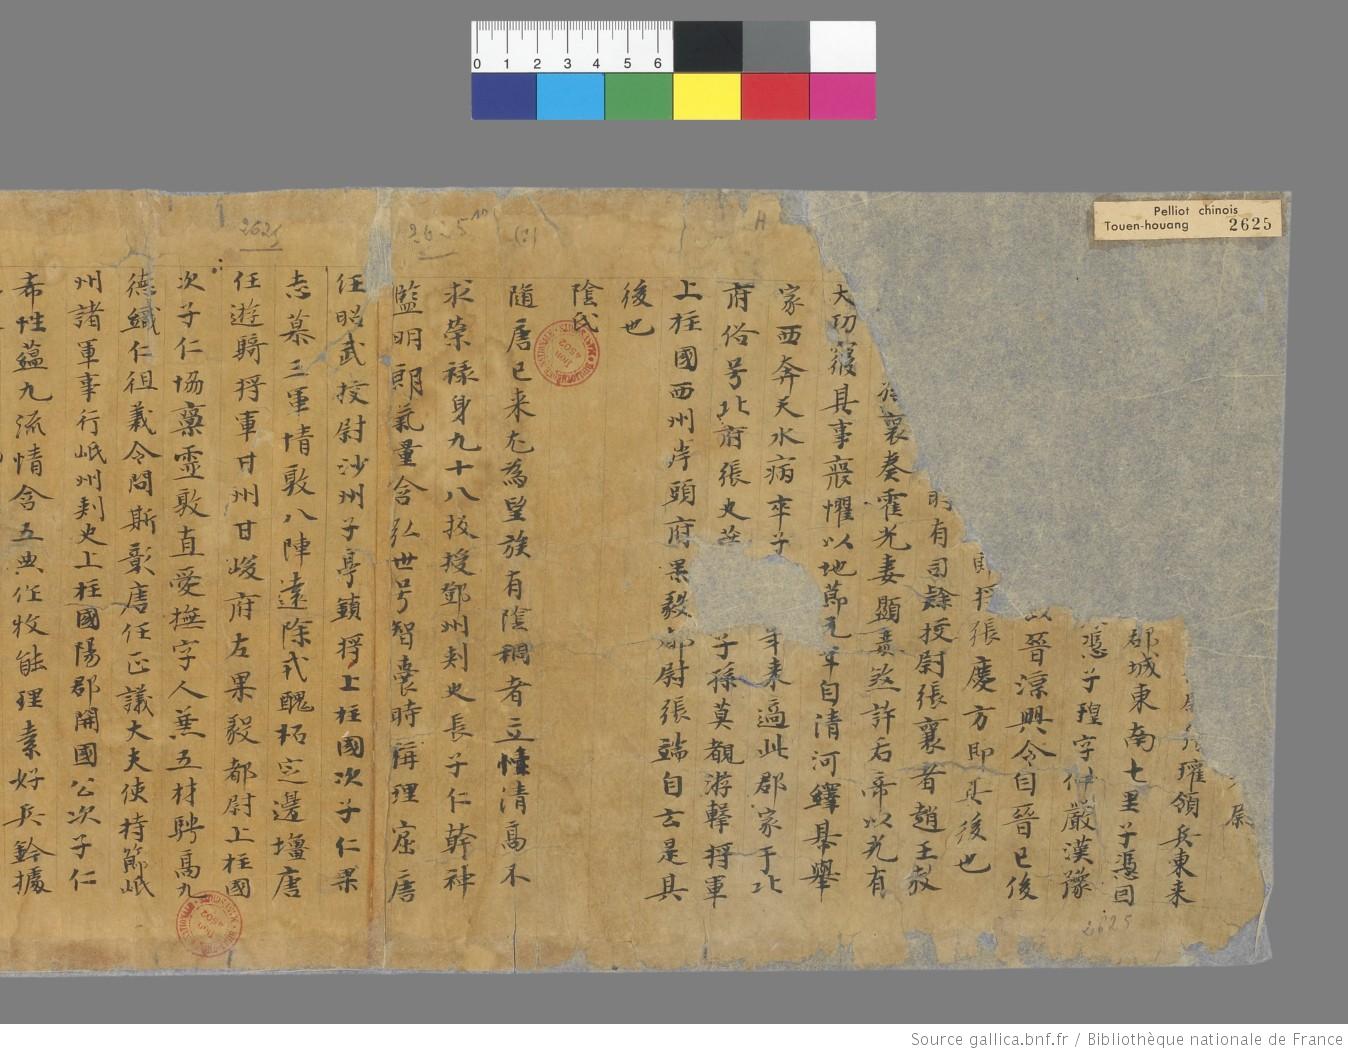 0 1 2 3 4 5 6
Pelliot chinois
Touen-houang 2625
2625
2625
2625
尉
瓘領兵東來
郡城東南七里子憑因
憑子瑝字仲嚴漢豫
晉涼興令自晉已後
郎將張慶方即其後也
有司隸校尉張襄者趙王敖
襄奏霍光妻顯毒煞許后帝以光有
大功寢其事襄懼以地節元年自清河繹幕舉
家西奔天水病卒子
年來適此郡家于北
府俗号北府張史
子孫莫覩游擊將軍
上柱國西州岸頭府果毅都尉張端自言是其
後也
陰氏
隨唐已來尤為望族有陰稠者立性清高不
求榮祿身九十八板授鄧州刾史長子仁幹神
監明朗氣量含弘世号智囊時稱理窟唐
任昭武校尉沙州子亭鎮將上柱國次子仁果
志慕三軍情敦八陣遠除戎醜拓定邊壃唐
任遊騎將軍甘州甘峻府左果毅都尉上柱國
次子仁協稟靈敦直愛撫字人蕪五材騁高九
德織仁徂義令問斯彰唐任正議大夫使持節岷
州諸軍事行岷州刾史上柱國陽郡開國公次子仁
希性蘊九流情含五典任牧能理素好兵鈐據
Source gallica.bnf.fr / Bibliothèque nationale de France